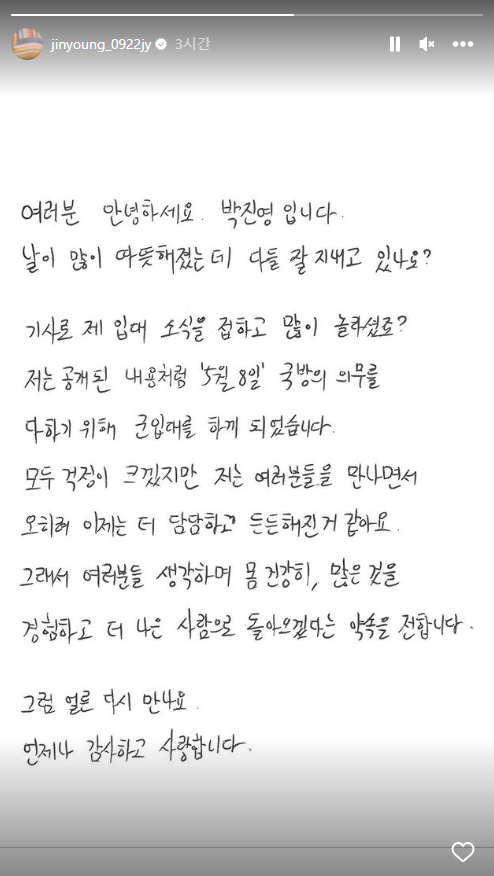 jinyoung_0922jy 3시간
여러분 안녕하세요. 박진영 입니다.
날이 많이 따뜻해졌는데 다들 잘 지내고 있나요?
기사로 제 입대 소식을 접하고 많이 놀라셨죠?
저는 공개된 내용처럼 '5월 8일' 국방의 의무를
다하기 위해 군입대를 하게 되었습니다.
모두 걱정이 크겠지만 저는 여러분들을 만나면서
오히려 이제는 더 담담하고 든든해진거 같아요.
그래서 여러분들 생각하며 몸 건강히, 많은 것을
경험하고 더 나은 사람으로 돌아오겠다는 약속을 전합니다.
그럼 얼른 다시 만나요.
언제나 감사하고 사랑합니다.